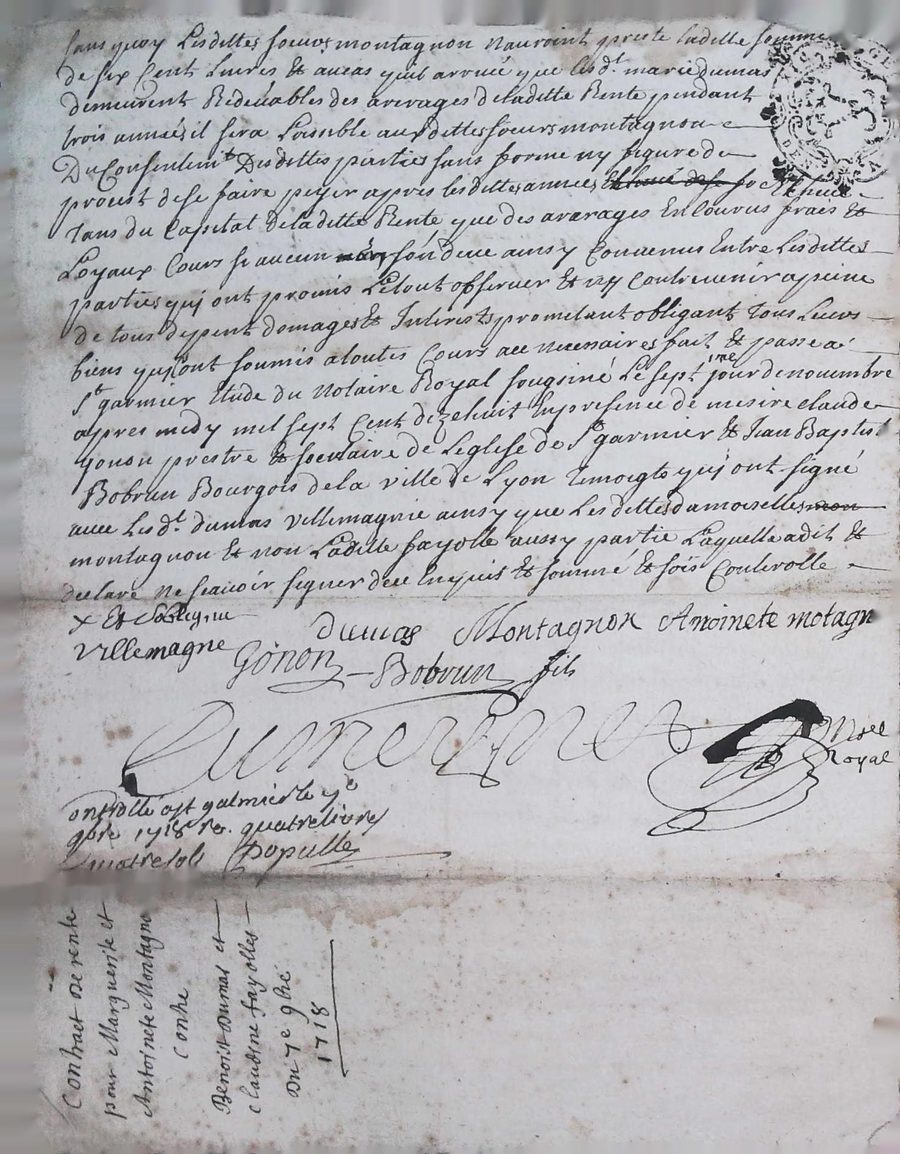 sans quoy Lesdittes soeurs montagnon nauroint preste Ladille somme
de six Cent Livres & aucas quil arrive que lesdt. marie dumas
demeurent Redevables des arerages deladitte Rente pendant
trois années il sera Loisible auxdittes soeurs montagnon
Du Consentemt. Desdittes parties sans forme ny figure de
proces de se faire payer apres lesdittes années
Tans du Capital deladitte Rente que des arerages Encourus frais &
Loyaux Cours si aucun sont deue ainsy Convenus Entre Lesdittes
parties quj ont promis Letout observer & ny Contrevenir apeine
de tous depent domages & Interests prometant obligant Tous Leurs
biens qujs ont soumis atoutes Cours ace necessaires fait & passe a
St. garmier Etude du Notaire Royal sousiné Le septime jour denovembre
apres midy mil sept Cent dezehuit Enpresence de mesire claude
gonon prestre & societaire de Leglise de St. garmier & Jean Baptist
Bobrun Bourgois dela ville de Lyon Temoigts quj ont signé
avec Lesdt. dumas villemagnie ainsy que Lesdittes damoiselles mon
montagnon & non Ladille fayolle aussy partie Laquelle adit &
declare ne scavoir signer dece Enquis & sommé & sois Conterolle
x Et
villemagne
Dumas Montagnon Anoinete motagn
Gonon Bobrun fils
Nore
Royal
ontrollé a st galmier le 7e
9bre 1718 re. quatre livres
quatre sols
Contract de rente
pour Marguerite et
Antoinete Montagno
Contre
Benoist Dumas et
claudine fayolles
Du 7e 9bre
1718